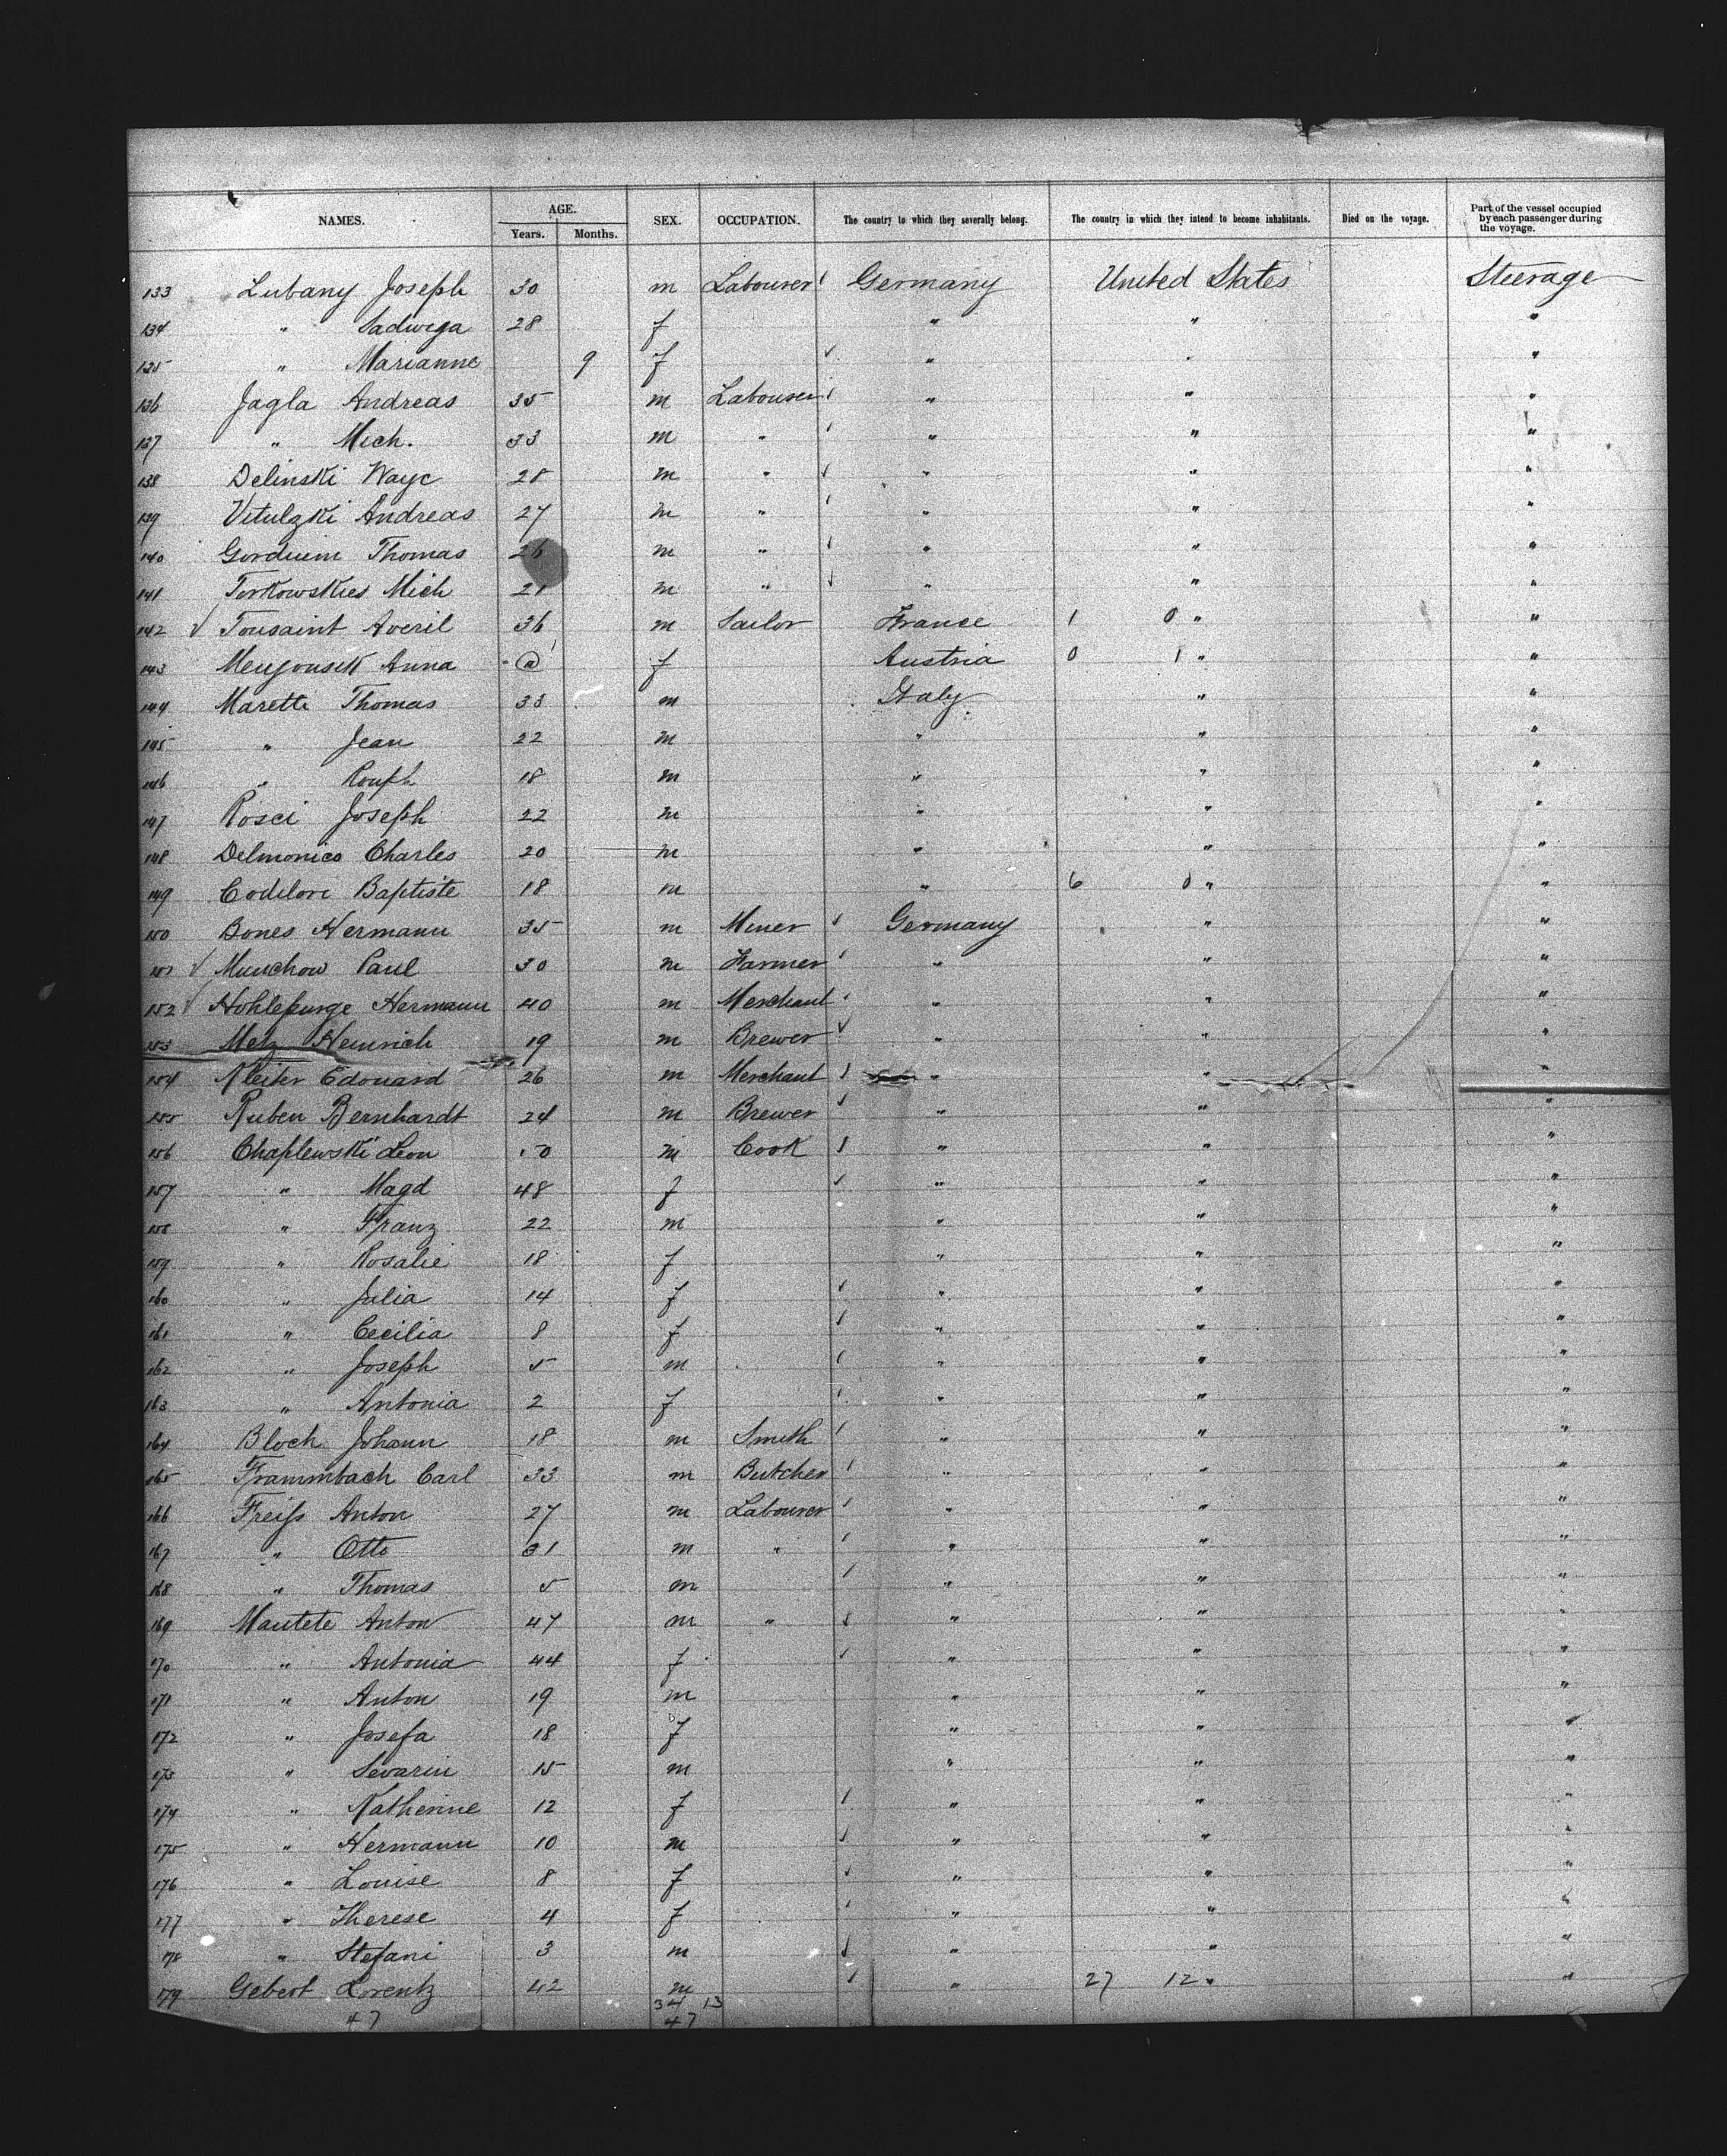 NAMES. AGE. SEX. OCCUPATION. The country to which they severally belong. The country in which they intend to become inhabitants. Died on the voyage. Part of the vessel occupied by each passenger during the voyage.
Years. Months.
133 Lubany Joseph 30 m Labourer Germany United States Steerage
134 " Sadwega 28 f " " "
135 " Marianne 9 f " " "
136 Jagla Andreas 35 m Labourer " " "
137 " Mich. 33 m " " " "
138 Delinski Wayc 28 m " " " "
139 Vitulzki Andreas 27 m " " " "
140 Gorduem Thomas 26 m " " " "
141 Torkowskies Mich 21 m " " " "
142 Tousaint Averil 36 m Sailor France 1 0 " "
143 Anna f Austria 0 1 " "
144 Maretti Thomas 33 m Italy " "
145 " Jean 22 m " " "
146 " 18 m " " "
147 Rosci Joseph 22 m " " "
148 Delmonico Charles 20 m " " "
149 Codilori Baptiste 18 m " 6 0 " "
150 Bones Hermann 35 m Miner Germany " "
151 Munchow Paul 30 m Farmer " " "
152 Hohlepunge Hermann 40 m Merchant " " "
153 Metz Heinrich 19 m Brewer " " "
154 Kleiter Edouard 26 m Merchant " " "
155 Ruben Bernhardt 24 m Brewer " " "
156 Chaplewski Leon 50 m Cook " " "
157 " Magd 48 f " " "
158 " Franz 22 m " " "
159 " Rosalie 18 f " " "
160 " Julia 14 f " " "
161 " Cecilia 8 f " " "
162 " Joseph 5 m " " "
163 " Antonia 2 f " " "
164 Bloch Johann 18 m Smith " " "
165 Frammbach Carl 33 m Butcher " " "
166 Freiss Anton 27 m Labourer " " "
167 " Otto 31 m " " " "
168 " Thomas 5 m " " "
169 Mautete Anton 47 m " " " "
170 " Antonia 44 f " " "
171 " Anton 19 m " " "
172 " Josefa 18 f " " "
173 " Severin 15 m " " "
174 " Katherine 12 f " " "
175 " Hermann 10 m " " "
176 " Louise 8 f " " "
177 " Therese 4 f " " "
178 " Stefani 3 m " " "
179 Gebert Lorentz 42 m " 27 12 " "
34 13
47 47